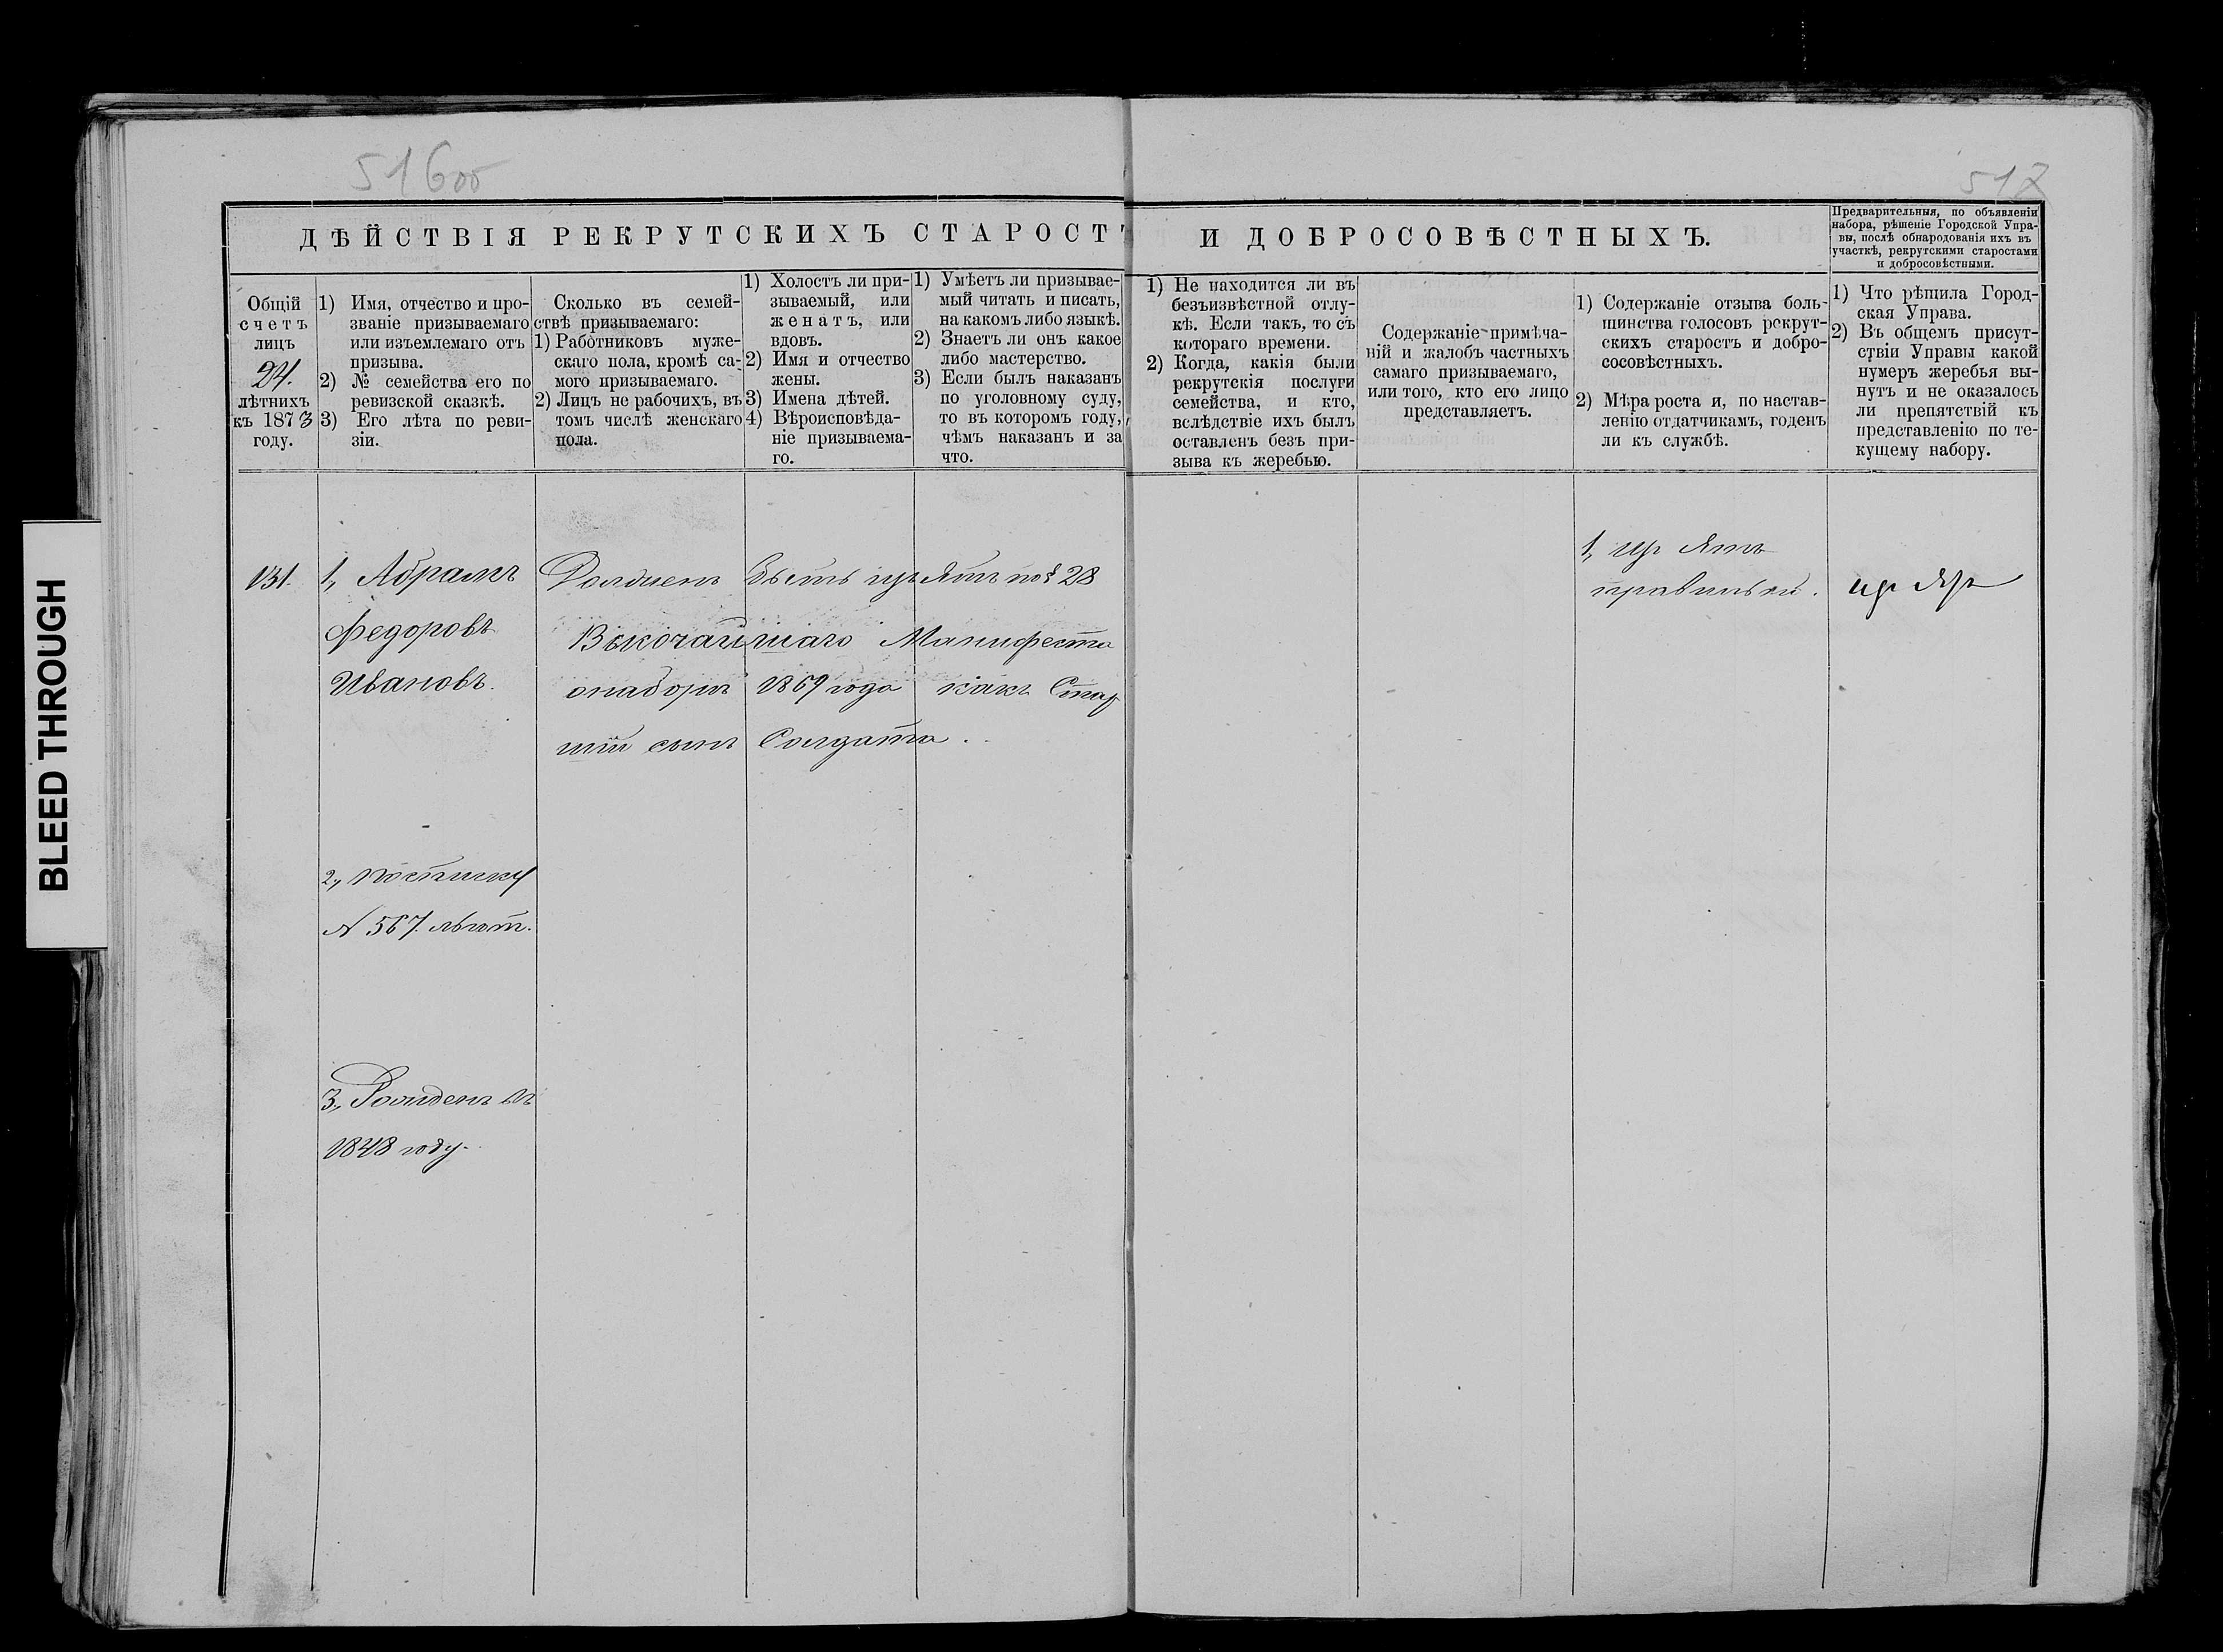 BLEED THROUGH
516об
517
ДѢЙСТВІЯ РЕКРУТСКИХЪ СТАРОСТЪ И ДОБРОСОВѢСТНЫХЪ.
Предварительныя, по объявленіи
набора, рѣшеніе Городской Упра-
вы, послѣ обнародованія ихъ въ
участкѣ, рекрутскими старостами
и добросовѣстными.
Общій
счетъ
лицъ
24.
лѣтнихъ
къ 1873
году.
1) Имя, отчество и про-
званіе призываемаго
или изъемлемаго отъ
призыва.
2) № семейства его по
ревизской сказкѣ.
3) Его лѣта по реви-
зіи.
Сколько въ семей-
ствѣ призываемаго:
1) Работниковъ муже-
скаго пола, кромѣ са-
мого призываемаго.
2) Лицъ не рабочихъ, въ
томъ числѣ женскаго
пола.
1) Холостъ ли при-
зываемый, или
женатъ, или
вдовъ.
2) Имя и отчество
жены.
3) Имена дѣтей.
4) Вѣроисповѣда-
ніе призываема-
го.
1) Умѣетъ ли призывае-
мый читать и писать,
на какомъ либо языкѣ.
2) Знаетъ ли онъ какое
либо мастерство.
3) Если былъ наказанъ
по уголовному суду,
то въ которомъ году,
чѣмъ наказанъ и за
что.
1) Не находится ли въ
безъизвѣстной отлу-
кѣ. Если такъ, то съ
котораго времени.
2) Когда, какія были
рекрутскія послуги
семейства, и кто,
вслѣдствіе ихъ былъ
оставленъ безъ при-
зыва къ жеребью.
Содержаніе примѣча-
ній и жалобъ частныхъ
самаго призываемаго,
или того, кто его лицо
представляетъ.
1) Содержаніе отзыва боль-
шинства голосовъ рекрут-
скихъ старостъ и добро-
сосовѣстныхъ.
2) Мѣра роста и, по настав-
ленію отдатчикамъ, годенъ
ли къ службѣ.
1) Что рѣшила Город-
ская Управа.
2) Въ общемъ присут-
ствіи Управы какой
нумеръ жеребья вы-
нутъ и не оказалось
ли препятствій къ
представленію по те-
кущему набору.
131.
1, Абрамъ
Федоровъ
Ивановъ.
Долженъ быть изъятъ по § 28
Высочайшаго Манифеста
о наборѣ 1869 года какъ Стар
шій сынъ Солдата.
1, изъятъ
правильно.
изъять
2, по списку
№ 567. льгот.
3, Рожденъ въ
1848 году.